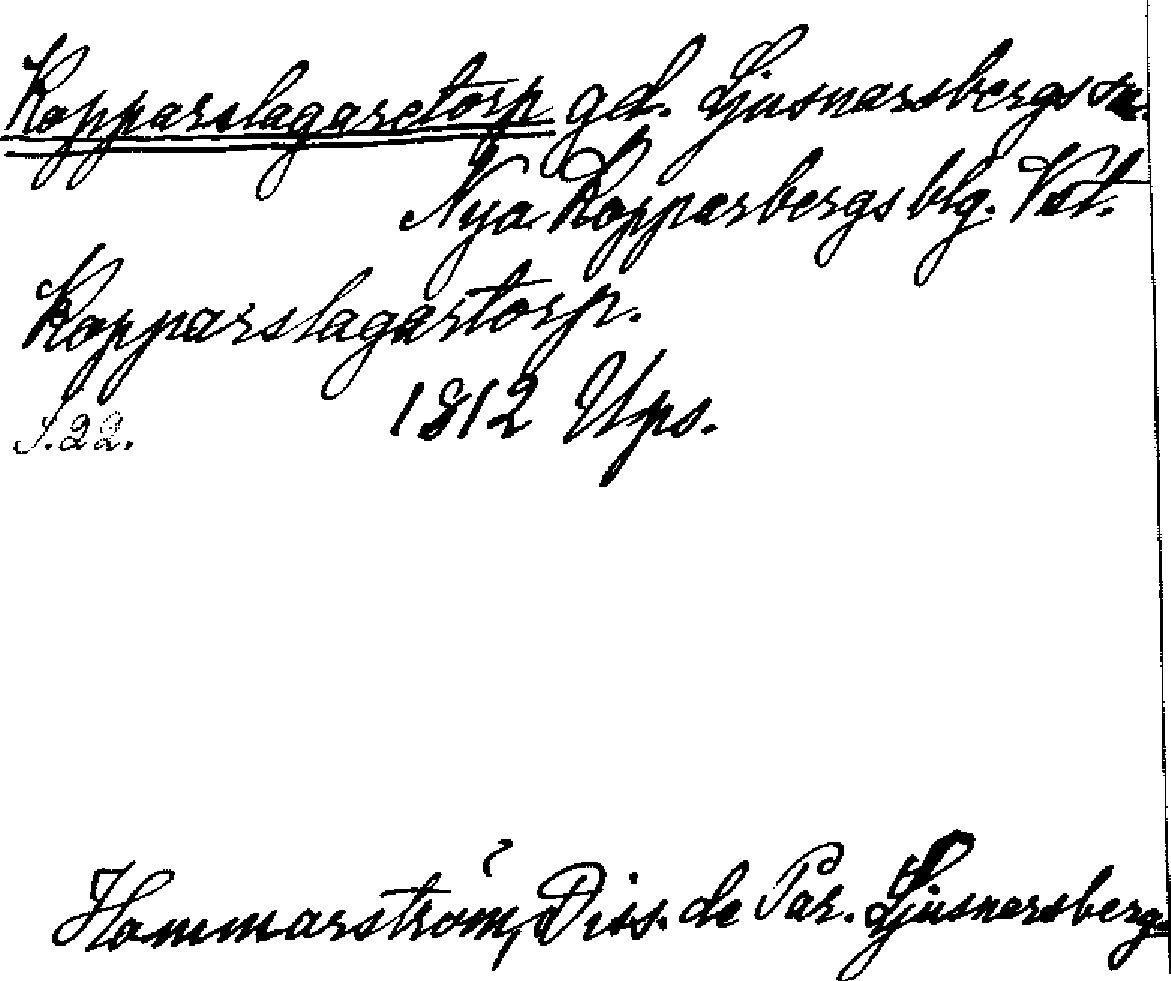 Kopparslagaretorp gd. Ljusnarsbergs sn.
Nya Kopparbergs blg. Vstl.
Kopparslagartorp.
S. 22. 1812 Ups.
Hammarström, Diss. de Par. Ljusnarsberg.